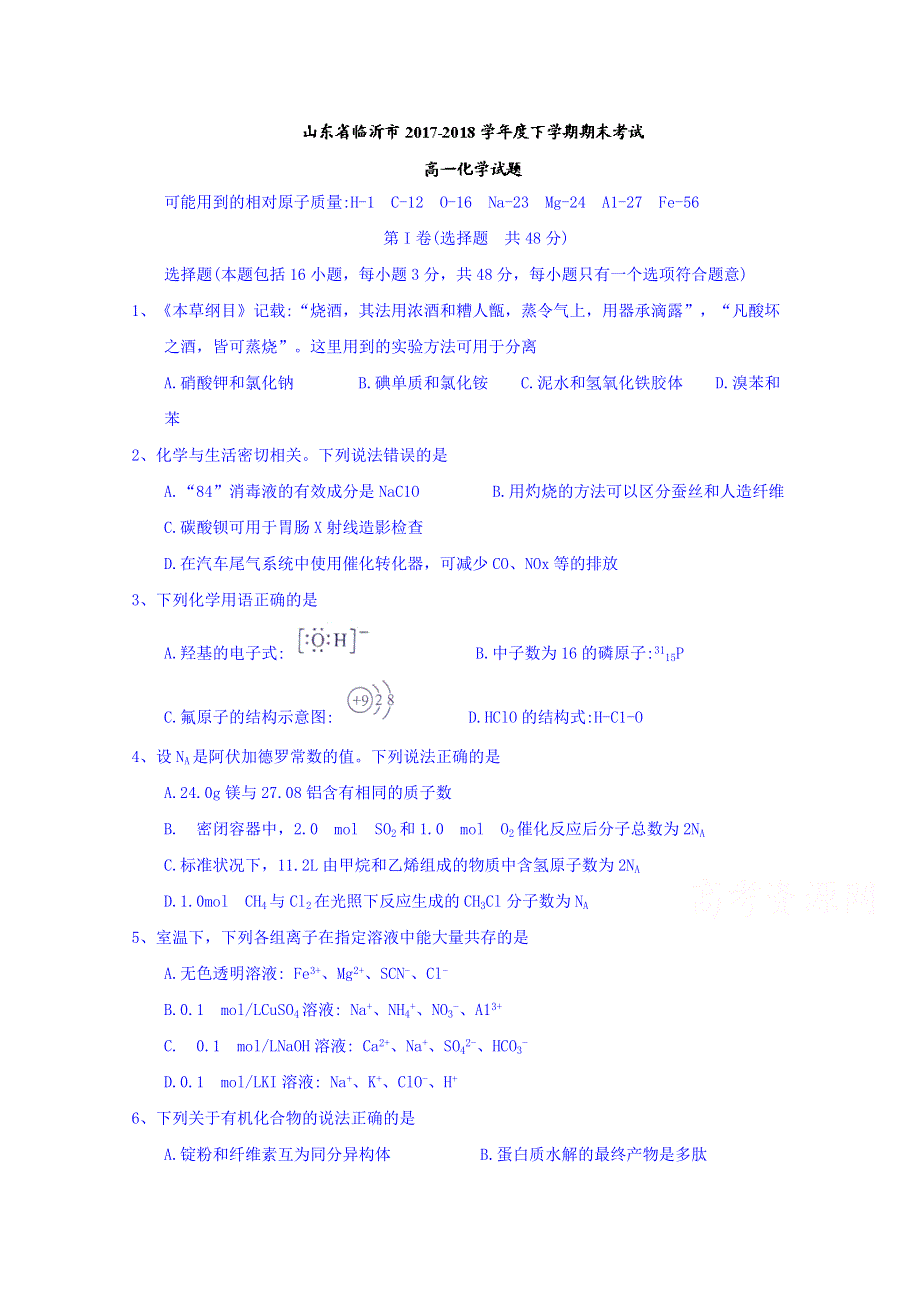 山东省临沂市 2017-2018 学年度下学期期末考试
高一化学试题
可能用到的相对原子质量:H-1 C-12 O-16 Na-23 Mg-24 A1-27 Fe-56
第 I 卷(选择题 共 48 分)
选择题(本题包括 16 小题，每小题 3 分，共 48 分，每小题只有一个选项符合题意)
1、《本草纲目》记载:“烧酒，其法用浓酒和糟人甑，蒸令气上，用器承滴露”，“凡酸坏
之酒，皆可蒸烧”。这里用到的实验方法可用于分离
A.硝酸钾和氯化钠 B.碘单质和氯化铵 C.泥水和氢氧化铁胶体 D.溴苯和
苯
2、化学与生活密切相关。下列说法错误的是
A.“84”消毒液的有效成分是 NaC1O B.用灼烧的方法可以区分蚕丝和人造纤维
C.碳酸钡可用于胃肠 X 射线造影检查
D.在汽车尾气系统中使用催化转化器，可减少 CO、NOx 等的排放
3、下列化学用语正确的是
A.羟基的电子式: [:Ö:H]⁻ B.中子数为 16 的磷原子:³¹₁₅P
C.氟原子的结构示意图: +9 2 8 D.HClO 的结构式:H-C1-O
4、设 N_A 是阿伏加德罗常数的值。下列说法正确的是
A.24.0g 镁与 27.08 铝含有相同的质子数
B. 密闭容器中，2.0 mol SO₂ 和 1.0 mol O₂ 催化反应后分子总数为 2N_A
C.标准状况下，11.2L 由甲烷和乙烯组成的物质中含氢原子数为 2N_A
D.1.0mol CH₄ 与 Cl₂ 在光照下反应生成的 CH₃Cl 分子数为 N_A
高考资源网
5、室温下，下列各组离子在指定溶液中能大量共存的是
A.无色透明溶液: Fe³⁺、Mg²⁺、SCN⁻、Cl⁻
B.0.1 mol/LCuSO₄ 溶液: Na⁺、NH₄⁺、NO₃⁻、A1³⁺
C. 0.1 mol/LNaOH 溶液: Ca²⁺、Na⁺、SO₄²⁻、HCO₃⁻
D.0.1 mol/LKI 溶液: Na⁺、K⁺、ClO⁻、H⁺
6、下列关于有机化合物的说法正确的是
A.锭粉和纤维素互为同分异构体 B.蛋白质水解的最终产物是多肽